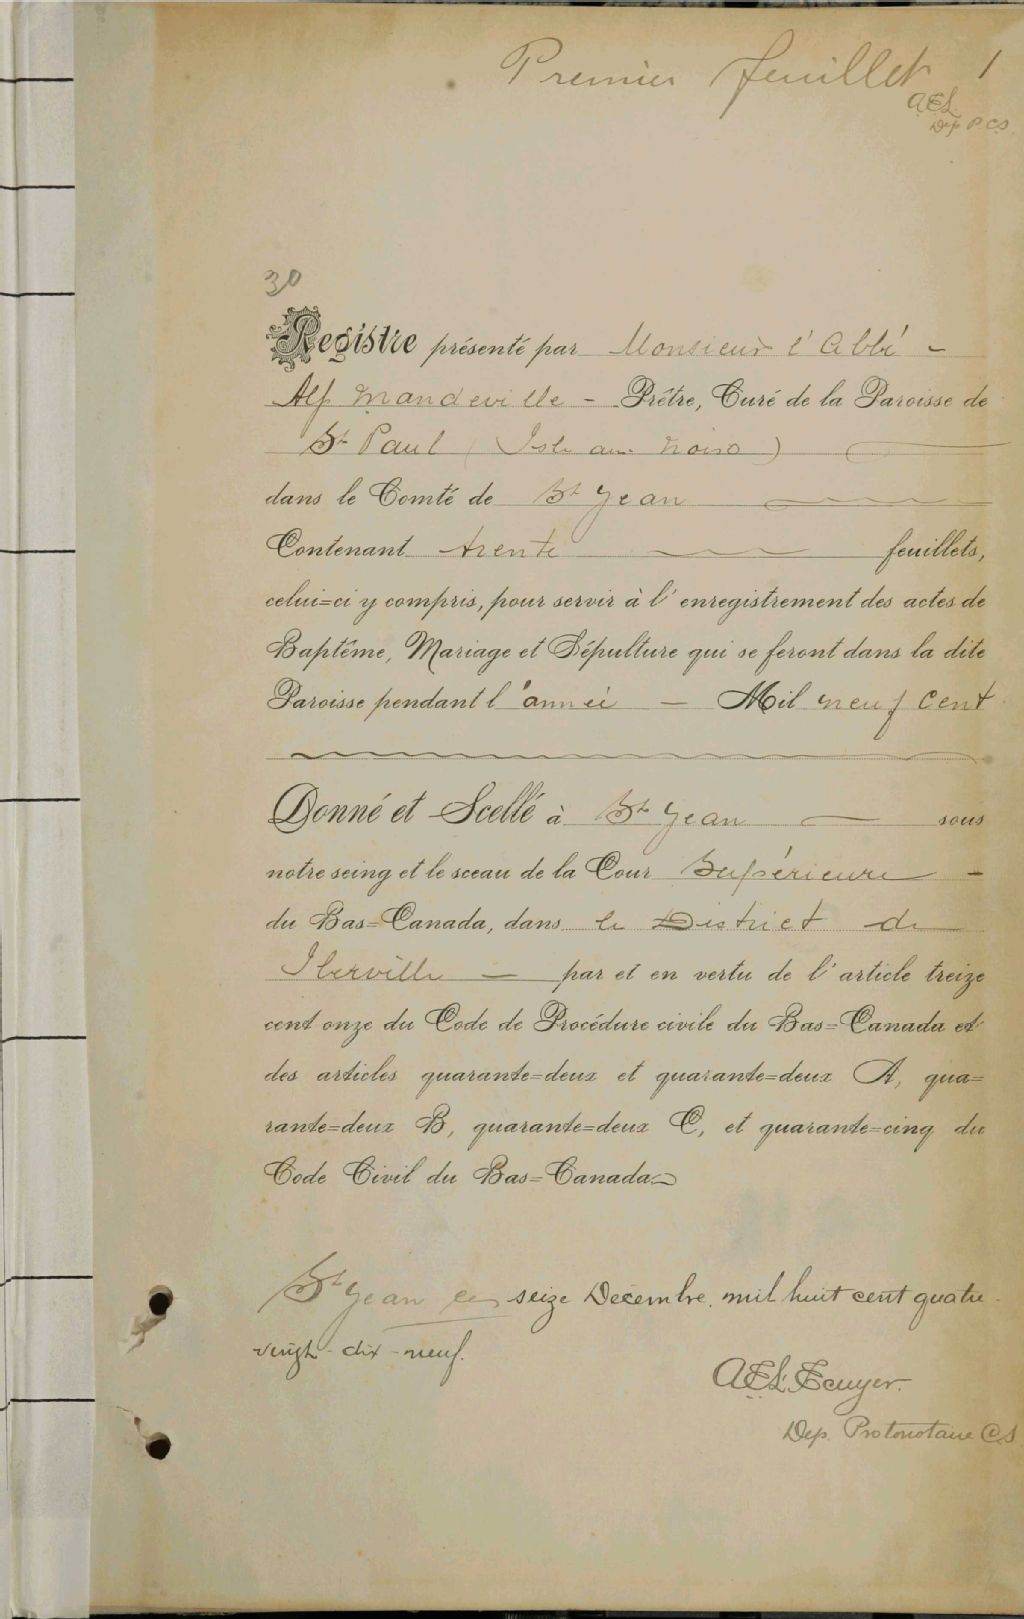 Premier feuillet 1
A.E.L.
Dep P.C.S.
30
Registre présenté par Monsieur l'Abbé -
Alf Mandeville - Prêtre, Curé de la Paroisse de
St Paul (Isle aux Noix)
dans le Comté de St Jean
Contenant trente feuillets,
celui=ci y compris, pour servir à l'enregistrement des actes de
Baptême, Mariage et Sépulture qui se feront dans la dite
Paroisse pendant l'année - Mil neuf cent
Donné et Scellé à St Jean sous
notre seing et le sceau de la Cour Supérieure -
du Bas=Canada, dans le District de
Iberville - par et en vertu de l'article treize
cent onze du Code de Procédure civile du Bas=Canada et
des articles quarante=deux et quarante=deux A, qua=
rante=deux B, quarante=deux C, et quarante=cinq du
Code Civil du Bas=Canada.
St Jean ce seize Décembre mil huit cent quatre
vingt-dix-neuf.
Dep. Protonotaire C.S.